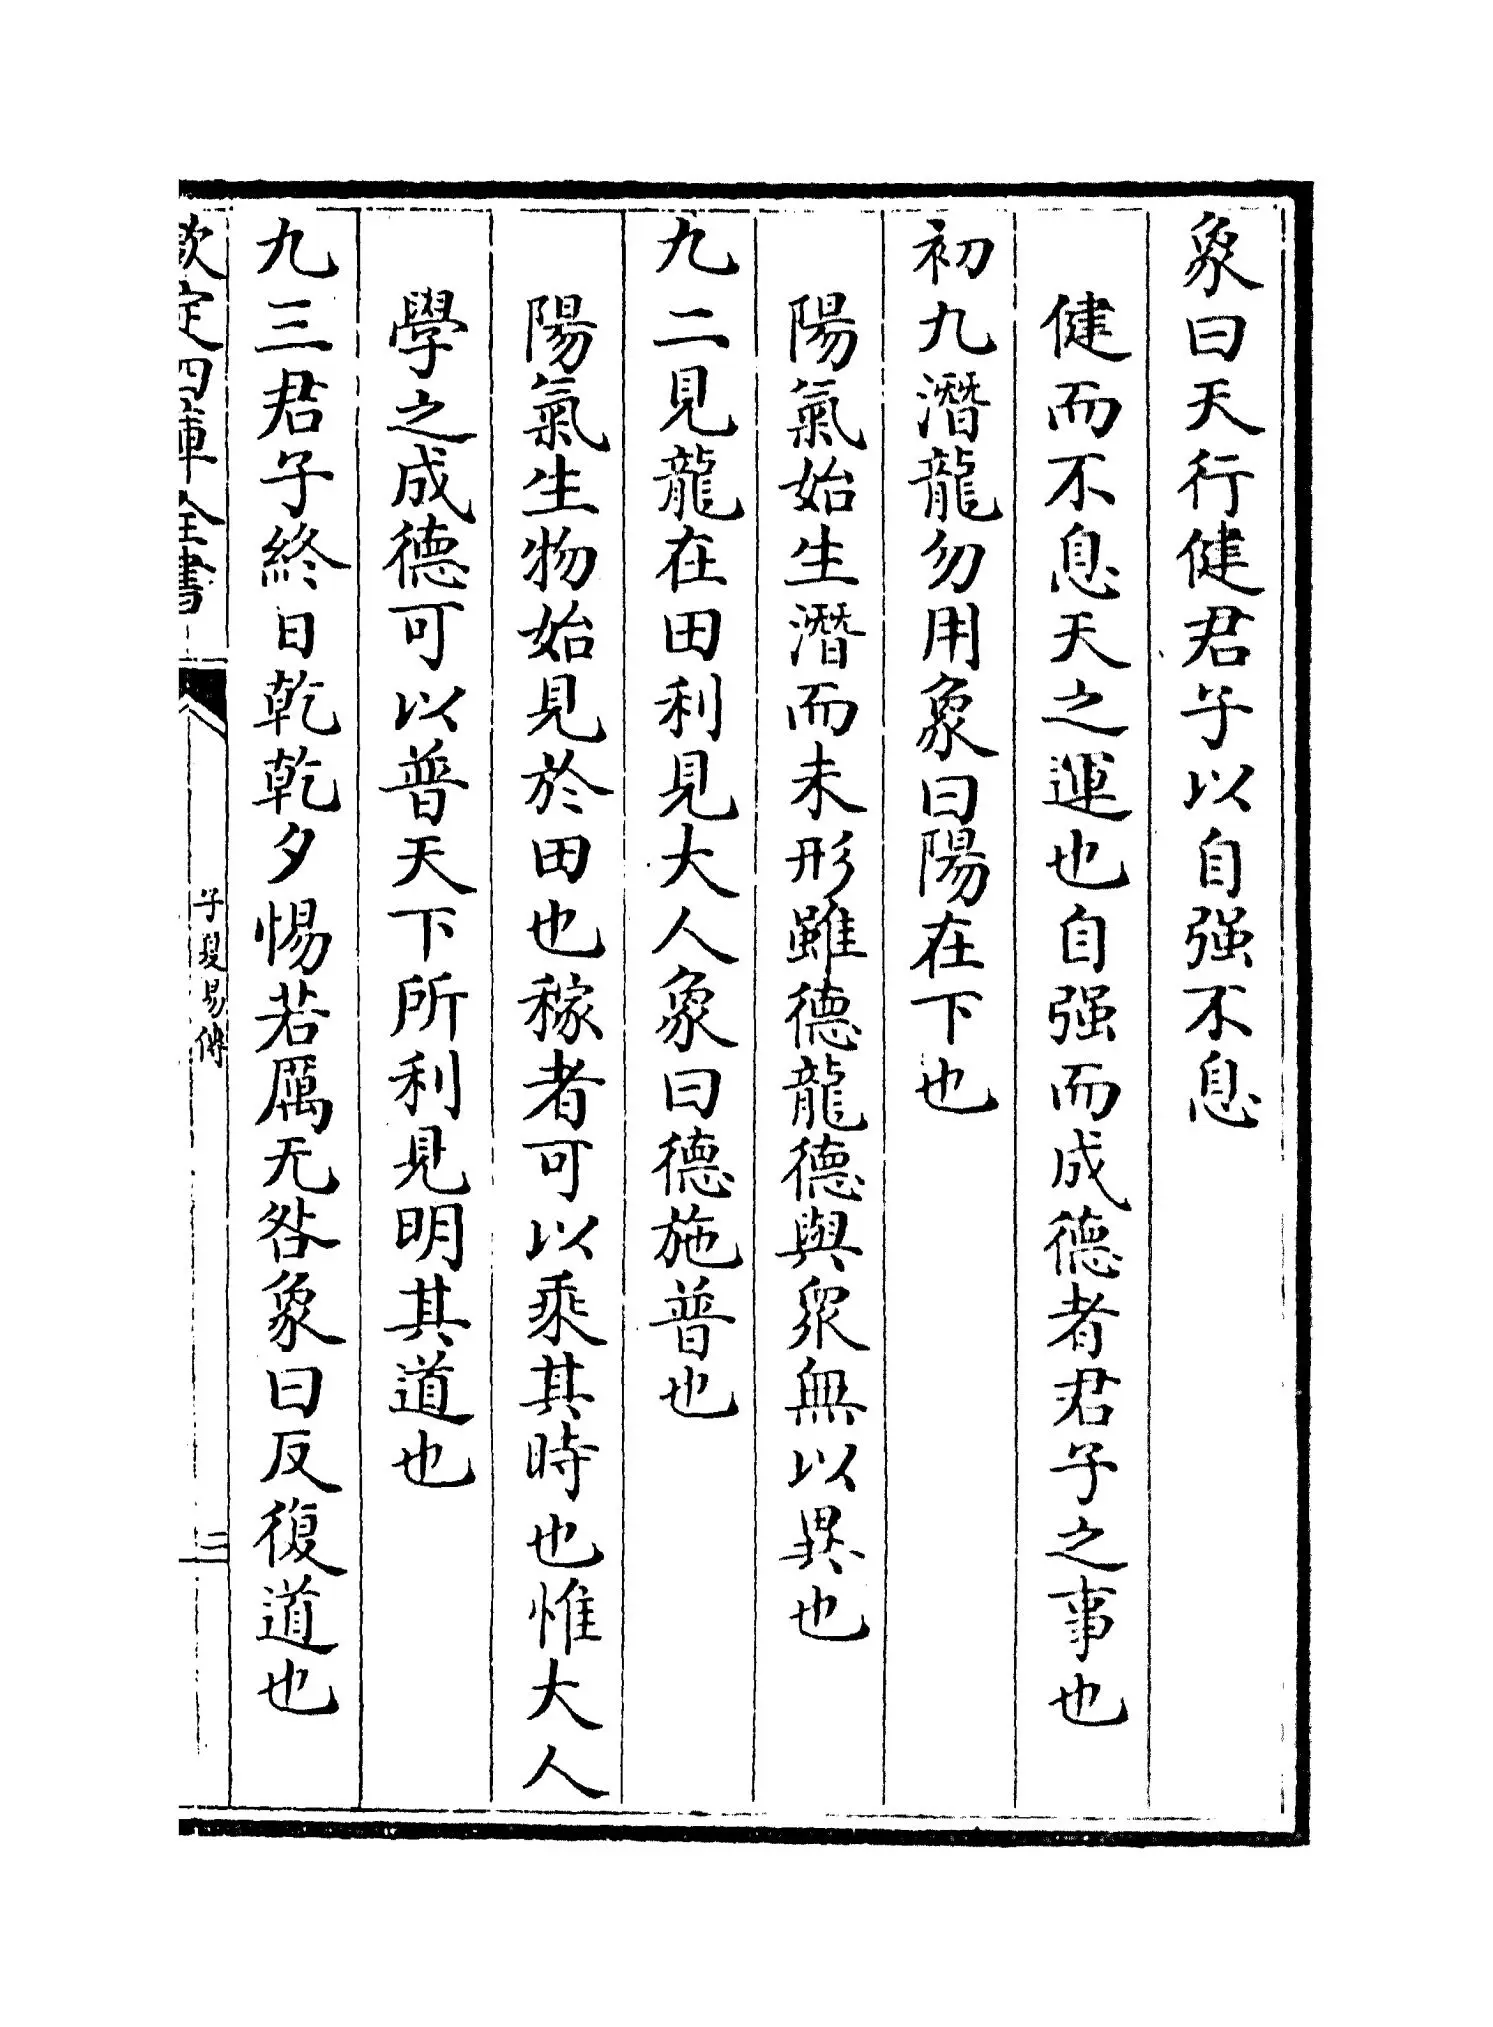 象曰天行健君子以自强不息
健而不息天之運也自强而成德者君子之事也
初九潛龍勿用象曰陽在下也
陽氣始生潛而未形雖德龍德與衆無以異也
九二見龍在田利見大人象曰德施普也
陽氣生物始見於田也稼者可以乘其時也惟大人
學之成德可以普天下所利見明其道也
九三君子終日乾乾夕惕若厲无咎象曰反復道也
欽定四庫全書
子夏易傳
二